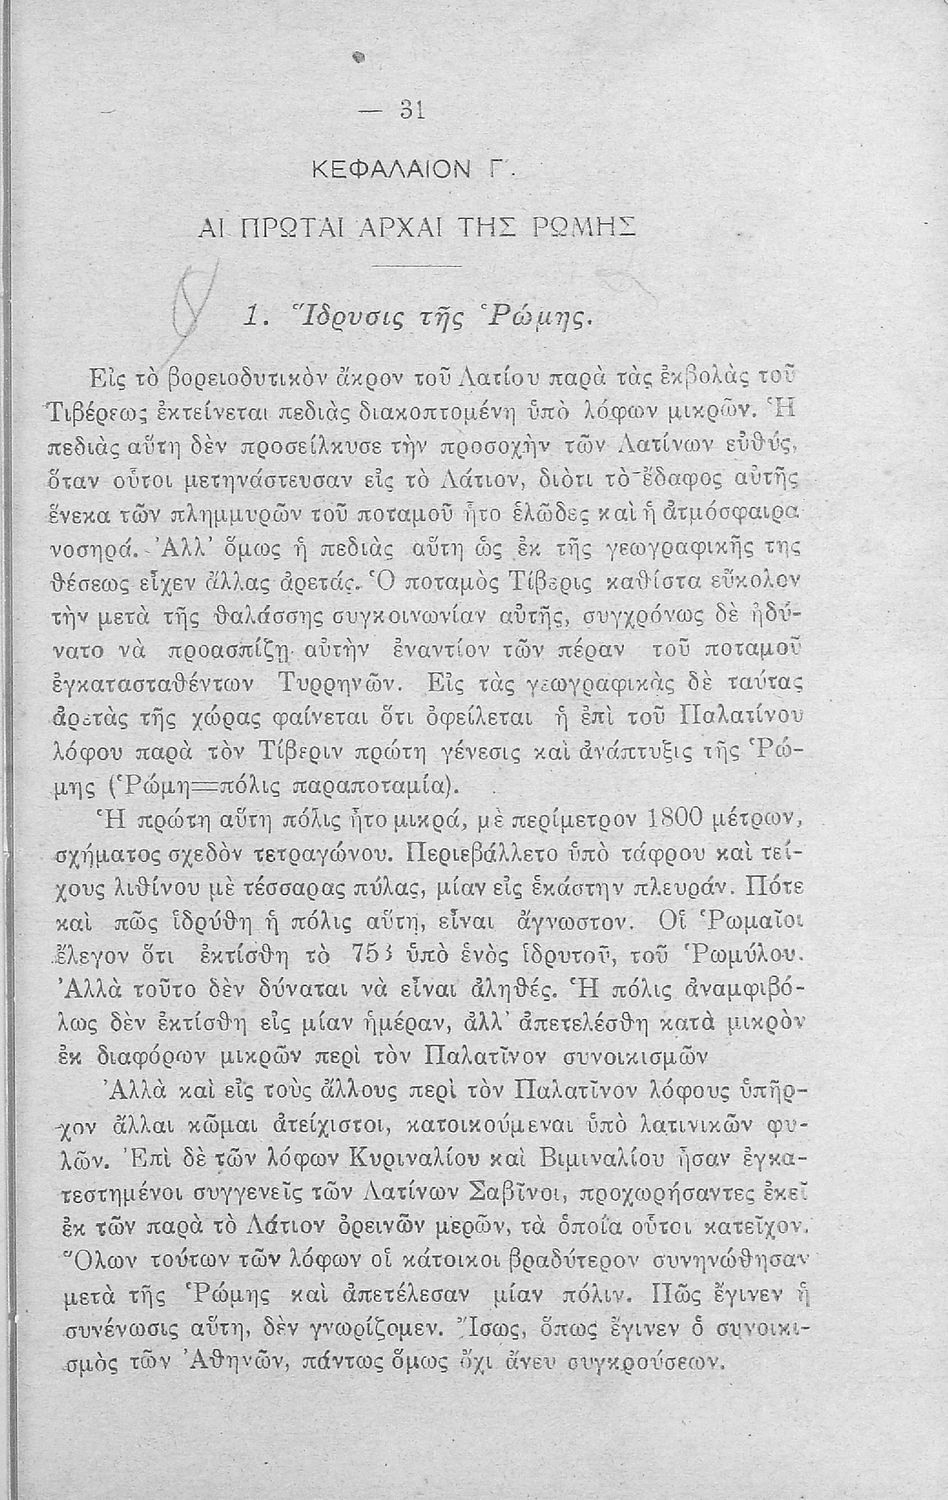 — 31
ΚΕΦΑΛΑΙΟΝ Γ΄.
ΑΙ ΠΡΩΤΑΙ ΑΡΧΑΙ ΤΗΣ ΡΩΜΗΣ
1. Ἵδρυσις τῆς Ῥώμης.
Εἰς τὸ βορειοδυτικὸν ἄκρον τοῦ Λατίου παρὰ τὰς ἐκβολὰς τοῦ
Τιβέρεως ἐκτείνεται πεδιὰς διακοπτομένη ὑπὸ λόφων μικρῶν. Ἡ
πεδιὰς αὕτη δὲν προσείλκυσε τὴν προσοχὴν τῶν Λατίνων εὐθύς,
ὅταν οὗτοι μετηνάστευσαν εἰς τὸ Λάτιον, διότι τὸ ἔδαφος αὐτῆς
ἕνεκα τῶν πλημμυρῶν τοῦ ποταμοῦ ἦτο ἑλῶδες καὶ ἡ ἀτμόσφαιρα
νοσηρά. Ἀλλ' ὅμως ἡ πεδιὰς αὕτη ὡς ἐκ τῆς γεωγραφικῆς της
θέσεως εἶχεν ἄλλας ἀρετάς. Ὁ ποταμὸς Τίβερις καθίστα εὔκολον
τὴν μετὰ τῆς θαλάσσης συγκοινωνίαν αὐτῆς, συγχρόνως δὲ ἠδύ-
νατο νὰ προασπίζῃ αὐτὴν ἐναντίον τῶν πέραν τοῦ ποταμοῦ
ἐγκατασταθέντων Τυρρηνῶν. Εἰς τὰς γεωγραφικὰς δὲ ταύτας
ἀρετὰς τῆς χώρας φαίνεται ὅτι ὀφείλεται ἡ ἐπὶ τοῦ Παλατίνου
λόφου παρὰ τὸν Τίβεριν πρώτη γένεσις καὶ ἀνάπτυξις τῆς Ῥώ-
μης (Ῥώμη=πόλις παραποταμία).
Ἡ πρώτη αὕτη πόλις ἦτο μικρά, μὲ περίμετρον 1800 μέτρων,
σχήματος σχεδὸν τετραγώνου. Περιεβάλλετο ὑπὸ τάφρου καὶ τεί-
χους λιθίνου μὲ τέσσαρας πύλας, μίαν εἰς ἑκάστην πλευράν. Πότε
καὶ πῶς ἱδρύθη ἡ πόλις αὕτη, εἶναι ἄγνωστον. Οἱ Ῥωμαῖοι
ἔλεγον ὅτι ἐκτίσθη τὸ 753 ὑπὸ ἑνὸς ἱδρυτοῦ, τοῦ Ῥωμύλου.
Ἀλλὰ τοῦτο δὲν δύναται νὰ εἶναι ἀληθές. Ἡ πόλις ἀναμφιβό-
λως δὲν ἐκτίσθη εἰς μίαν ἡμέραν, ἀλλ' ἀπετελέσθη κατὰ μικρὸν
ἐκ διαφόρων μικρῶν περὶ τὸν Παλατῖνον συνοικισμῶν
Ἀλλὰ καὶ εἰς τοὺς ἄλλους περὶ τὸν Παλατῖνον λόφους ὑπῆρ-
χον ἄλλαι κῶμαι ἀτείχιστοι, κατοικούμεναι ὑπὸ λατινικῶν φυ-
λῶν. Ἐπὶ δὲ τῶν λόφων Κυριναλίου καὶ Βιμιναλίου ἦσαν ἐγκα-
τεστημένοι συγγενεῖς τῶν Λατίνων Σαβῖνοι, προχωρήσαντες ἐκεῖ
ἐκ τῶν παρὰ τὸ Λάτιον ὀρεινῶν μερῶν, τὰ ὁποῖα οὗτοι κατεῖχον.
Ὅλων τούτων τῶν λόφων οἱ κάτοικοι βραδύτερον συνηνώθησαν
μετὰ τῆς Ῥώμης καὶ ἀπετέλεσαν μίαν πόλιν. Πῶς ἔγινεν ἡ
συνένωσις αὕτη, δὲν γνωρίζομεν. Ἴσως, ὅπως ἔγινεν ὁ συνοικι-
σμὸς τῶν Ἀθηνῶν, πάντως ὅμως ὄχι ἄνευ συγκρούσεων.